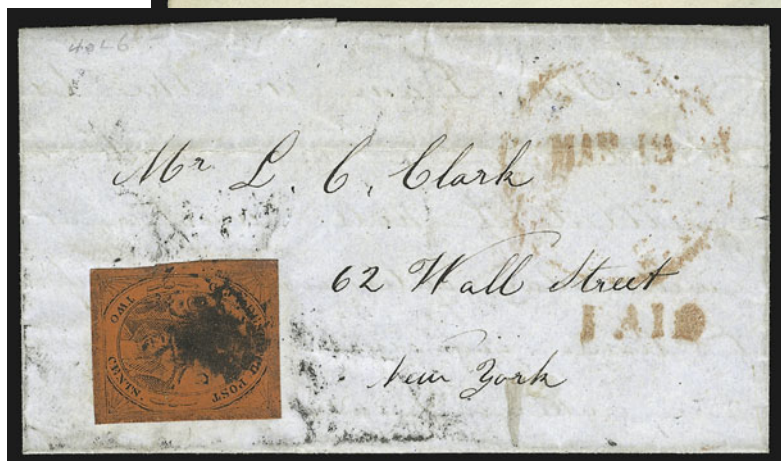 40L6
Mr L. C. Clark
62 Wall Street
New York
TWO CENTS.
POST